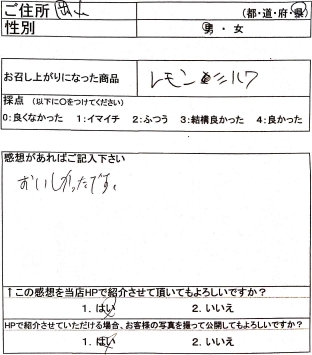 ご住所 岡山 (都・道・府・県)
性別 男・女
お召し上がりになった商品 レモンミルク
採点 (以下に○をつけてください)
0:良くなかった 1:イマイチ 2:ふつう 3:結構良かった 4:良かった
感想があればご記入下さい
おいしかったです。
↑この感想を当店HPで紹介させて頂いてもよろしいですか?
1. はい 2. いいえ
HPで紹介させていただける場合、お客様の写真を撮って公開してもよろしいですか?
1. はい 2. いいえ